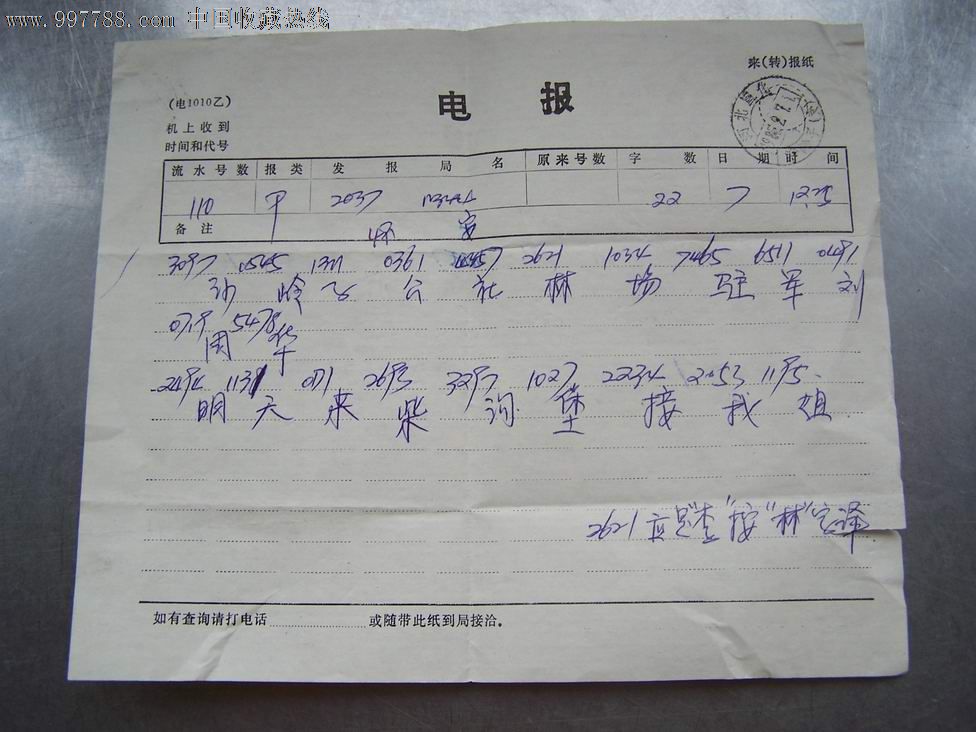 www.997788.com 中国收藏热线
来(转)报纸
(电1010乙)
电报
机上收到
时间和代号
流水号数 报类 发报局名 原来号数 字数 日期 时间
110 2037 22 7 1225
备注 怀安
3097 0545 0361 2621 1034 7465 6511 0491
沙岭子公社林场驻军刘
5478
国华
2494 1131 2693 3297 1027 2234 2053 1195
明天来柴沟堡接我姐
2621应是"查"按"林"字译
如有查询请打电话 或随带此纸到局接洽。